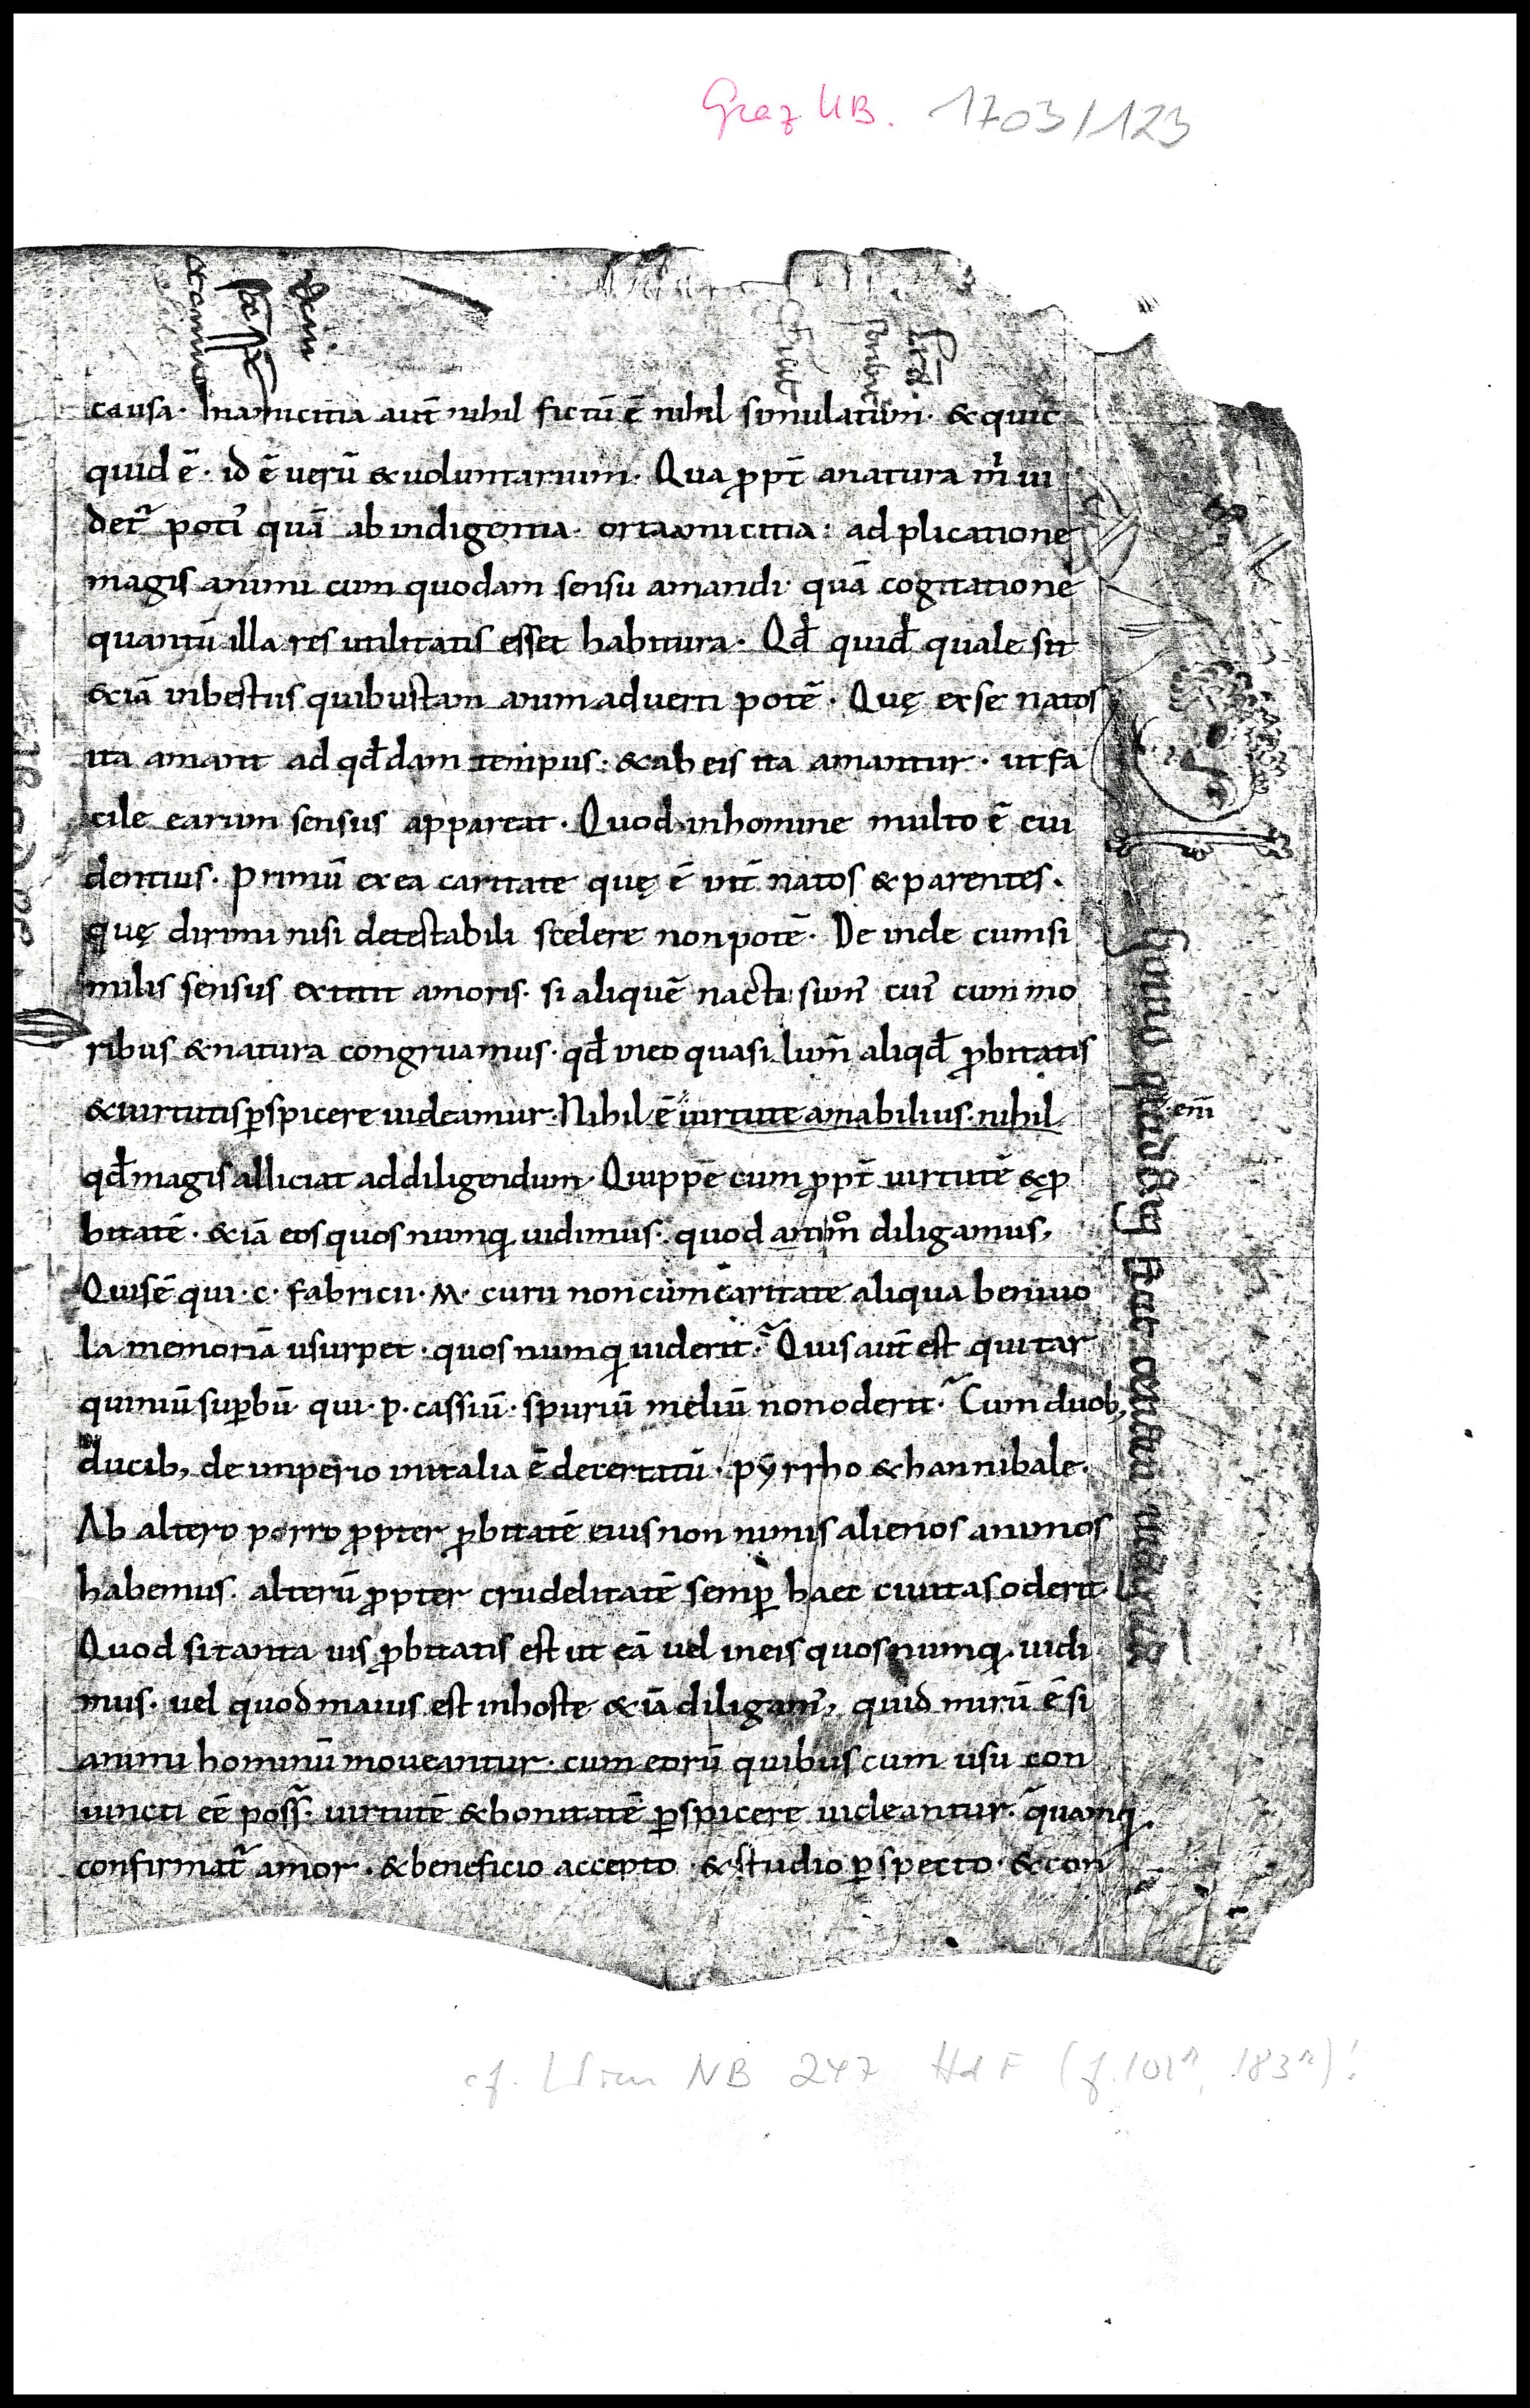 Graz UB. 1703/123
causa. Inamicitia aut̄ nihil fictū ē nihil simulatum. & quic
quid ē. id ē uerū & uoluntarium. Qua ꝓpt̄ anatura m̄ ui
det᷑ poti᾽ quā ab indigentia. ortaamicitia: ad plicatione
magis animi cum quodam sensu amandi quā cogitatione
quantū illa res utilitatis esset habitura. Qđ quiđ quale sit
&iā inbestiis quibusdam animaduerti potē. Quę exse natos
ita amant ad qđdam tempus: & ab eis ita amantur. ut fa
cile earum sensus appareat. Quod inhomine multo ē eui
dentius. Primū ex ea caritate quę ē int̄ natos & parentes.
quę dirimi nisi detestabili scelere nonpotē. De inde cumsi
milis sensus extitit amoris. si aliquē nacti sum᾽ cui᾽ cum mo
ribus & natura congruamus. qđ ineo quasi lum̄ aliqđ ꝓbitatis
& uirtutis ꝑspicere uideamur. Nihil ē uirtute amabilius. nihil
em̄
qđ magis alliciat addiligendum. Quippe cum ꝓpt̄ uirtutē & ꝓ
bitatē. &iā eos quos numq̨ uidimus. quod amm̊ diligamus,
Quisē qui. c. fabricii. M. curii noncum caritate aliqua beniuo
la memoriā usurpet. quos numq̨ uiderit. Quis aut̄ est qui tar
quiniū suꝑbū qui. p. cassiū. spuriū meliū nonoderit. Cum duob,
ducib, de imperio initalia ē decertatū. pyrrho & hannibale.
Ab altero porro ꝓpter ꝓbitatē eius non nimis alienos animos
habemus. alterū ꝓpter crudelitatē semꝑ haec ciuitas oderit.
Quod si tanta uis ꝓbitatis est ut eā uel ineis quos numq̨. uidi
mus. uel quod maius est inhoste &iā diligam᾽, quid mirū ē si
animi hominū moueantur. cum eorū quibus cum usu con
iuncti eē poss̄. uirtutē & bonitatē ꝑspicere uideantur. quamq̨
confirmat᷑ amor. & beneficio accepto. & studio ꝑspecto. & con
cf. Wien NB 247 Hd F (f. 101r, 183r)!